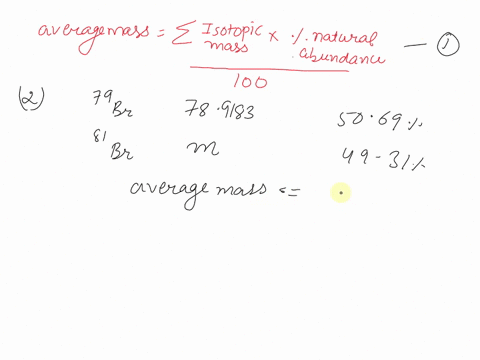 average mass = Σ Isotopic mass × % natural abundance — ①
100
(2) ⁷⁹Br 78.9183 50.69%
⁸¹Br m 49.31%
average mass =